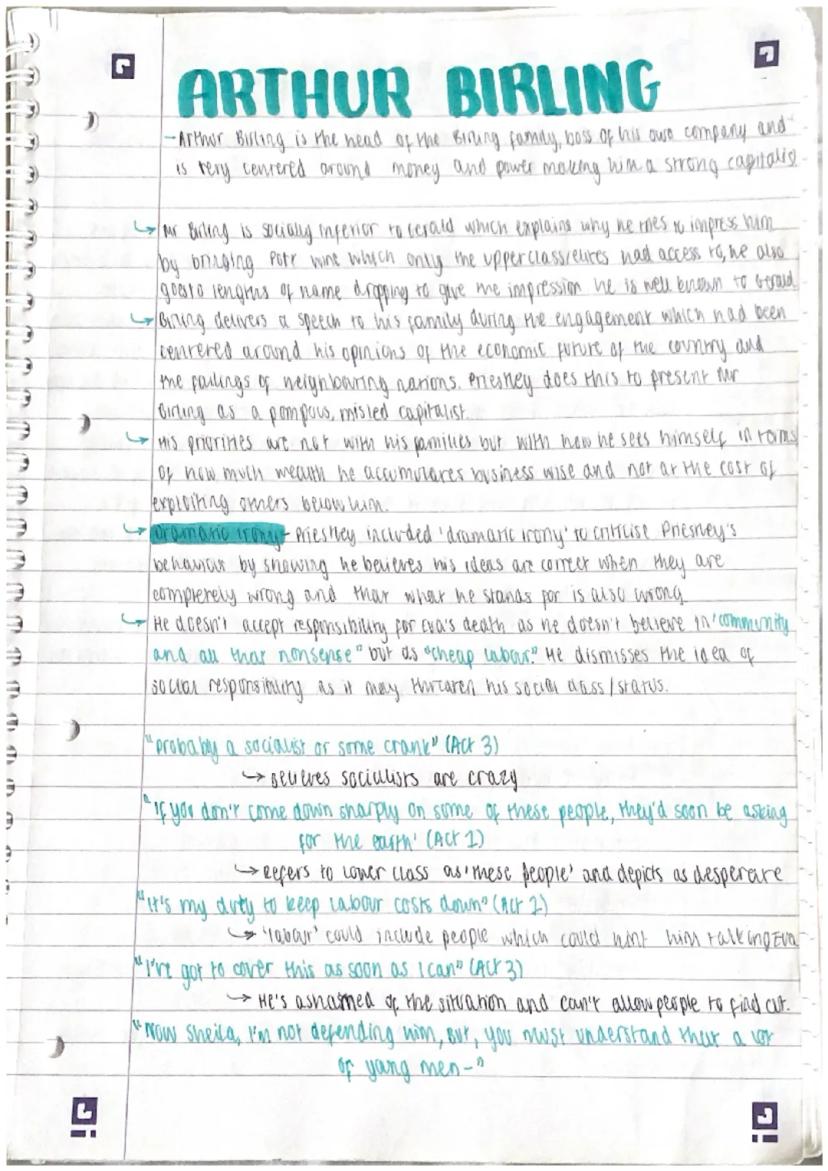 ARTHUR BIRLING
- Arthur Birling is the head of the Birling family, boss of his own company and
is very centered around money and power making him a strong capitalist
↳ Mr Birling is socially inferior to Gerald which explains why he tries to impress him
by bringing Port wine which only the upperclass/elites had access to, he also
goes to lengths of name dropping to give the impression he is well known to Gerald.
↳ Birling delivers a speech to his family during the engagement which had been
centered around his opinions of the economic future of the country and
the failings of neighbouring nations. Priestley does this to present Mr
Birling as a pompous, misled capitalist.
↳ His priorities are not with his families but with how he sees himself in terms
of how much wealth he accumulates business wise and not at the cost of
exploiting others below him.
↳ Dramatic irony - Priestley included 'dramatic irony' to criticise Priesney's
behaviour by showing he believes his ideas are correct when they are
completely wrong and that what he stands for is also wrong
↳ He doesn't accept responsibility for Eva's death as he doesn't believe in 'community
and all that nonsense" but as "cheap labour." He dismisses the idea of
social responsibility as it may threaten his social class/status.
"Probably a socialist or some crank" (Act 3)
→ Believes socialists are crazy
"If you don't come down sharply on some of these people, they'd soon be asking
for the earth' (Act 1)
→ Refers to lower class as 'these people' and depicts as desperate
"It's my duty to keep labour costs down" (Act 2)
↳ 'labour' could include people which could hint him talking Eva
"I've got to cover this as soon as I can" (Act 3)
→ He's ashamed of the situation and can't allow people to find out.
"Now Sheila, I'm not defending him, But, you must understand that a lot
of yang men-"